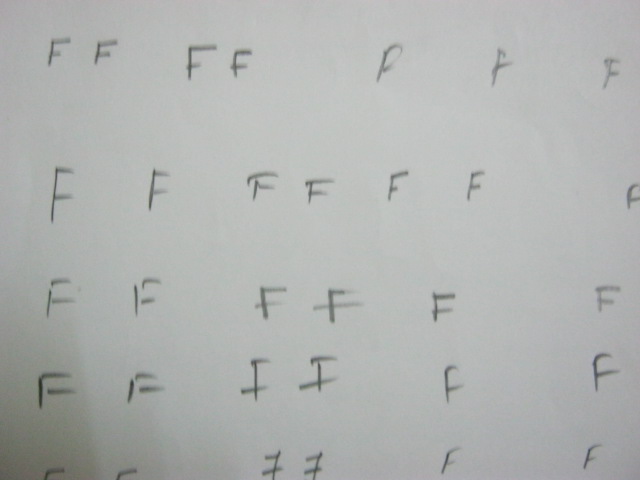 F F F F F F F
F F F F F F F
F F F F F F
F F F F F F
F F F F F F